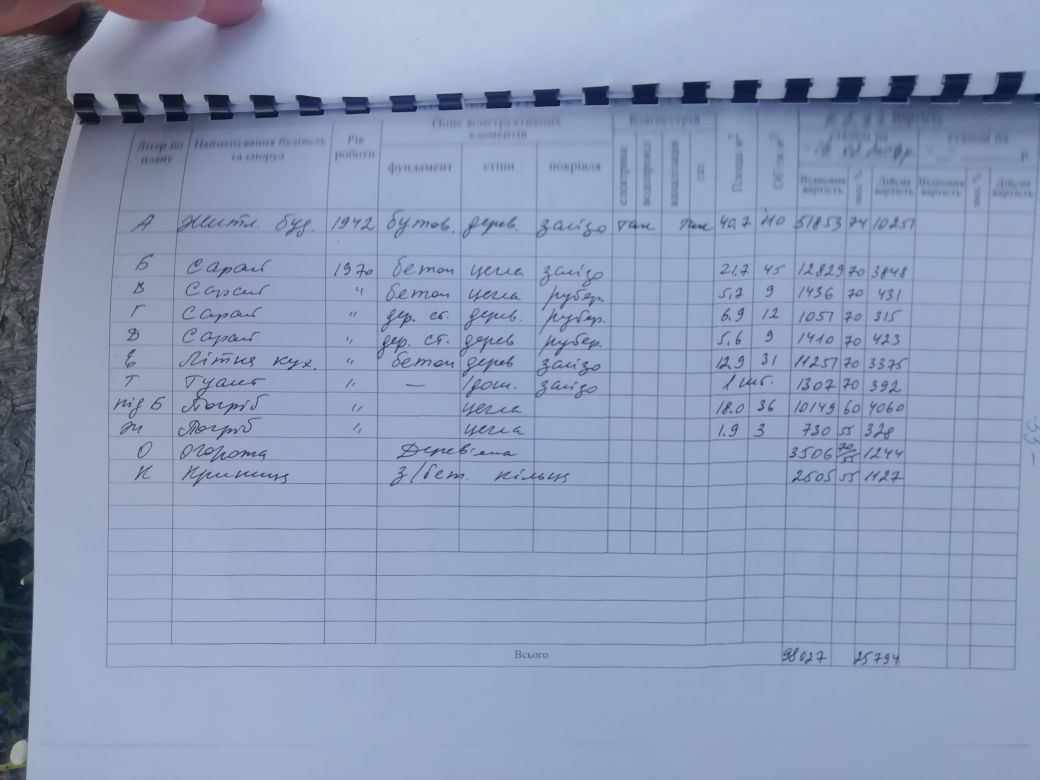 Літер по плану Найменування будівель та споруд Рік роботи Опис конструктивних елементів Благоустрій Площа м² Об'єм м³ вартість
фундамент стіни покрівля електрика водопровід каналізація газ станом на станом на р.
Відновна вартість знос % Дійсна вартість Відновна вартість знос % Дійсна вартість
А Житл. буд. 1942 бутов. дерев. залізо так так 40,7 110 51853 74 10251
Б Сарай 1970 бетон цегла залізо 21,7 45 12829 70 3848
В Сарай " бетон цегла рубер. 5,7 9 1436 70 431
Г Сарай " дер. ст. дерев. рубер. 6.9 12 1051 70 315
Д Сарай " дер. ст. дерев рубер. 5.6 9 1410 70 423
Е Літня кух. " бетон дерев залізо 12,9 31 11251 70 3375
Т Туалет " — дош. залізо 1 шт. 1307 70 392
під Б Погріб " цегла 18.0 36 10149 60 4060
Ж Погріб " цегла 1.9 3 730 55 328
О Огорожа Дерев'яна 3506 70/55 1244
К Криниця З/бет. кільця 2505 55 1127
Всього 98027 25794